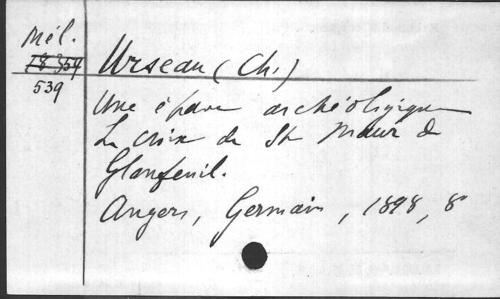 Mél.
539
Urseau (Ch.)
Une épave archéologique
La croix de St Maur de
Glanfeuil.
Angers, Germain, 1898, 8°